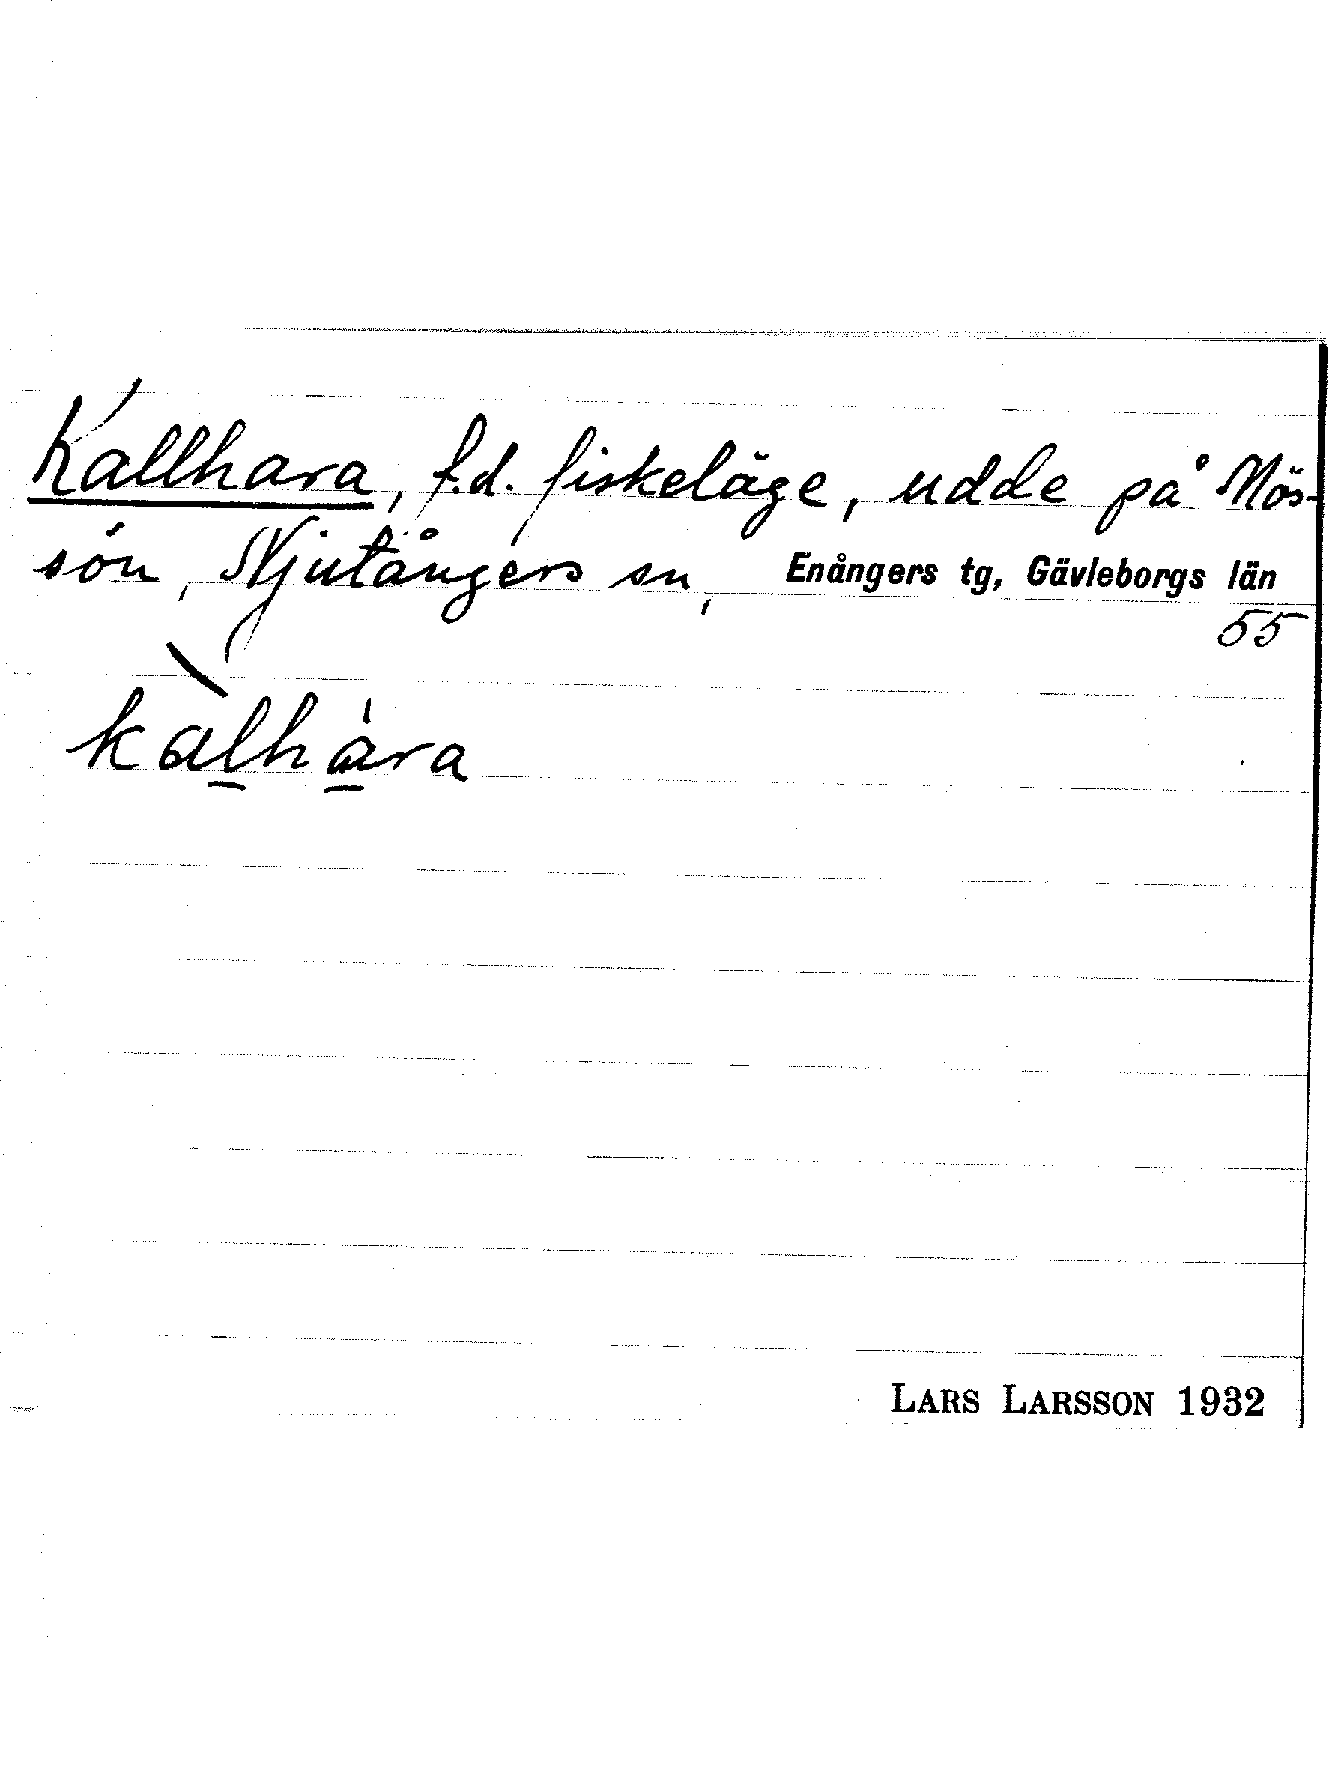 Kallhara, f.d. fiskeläge, udde på Mös-
sön, Njutångers sn, Enångers tg, Gävleborgs län
55
kàlhàra
LARS LARSSON 1932